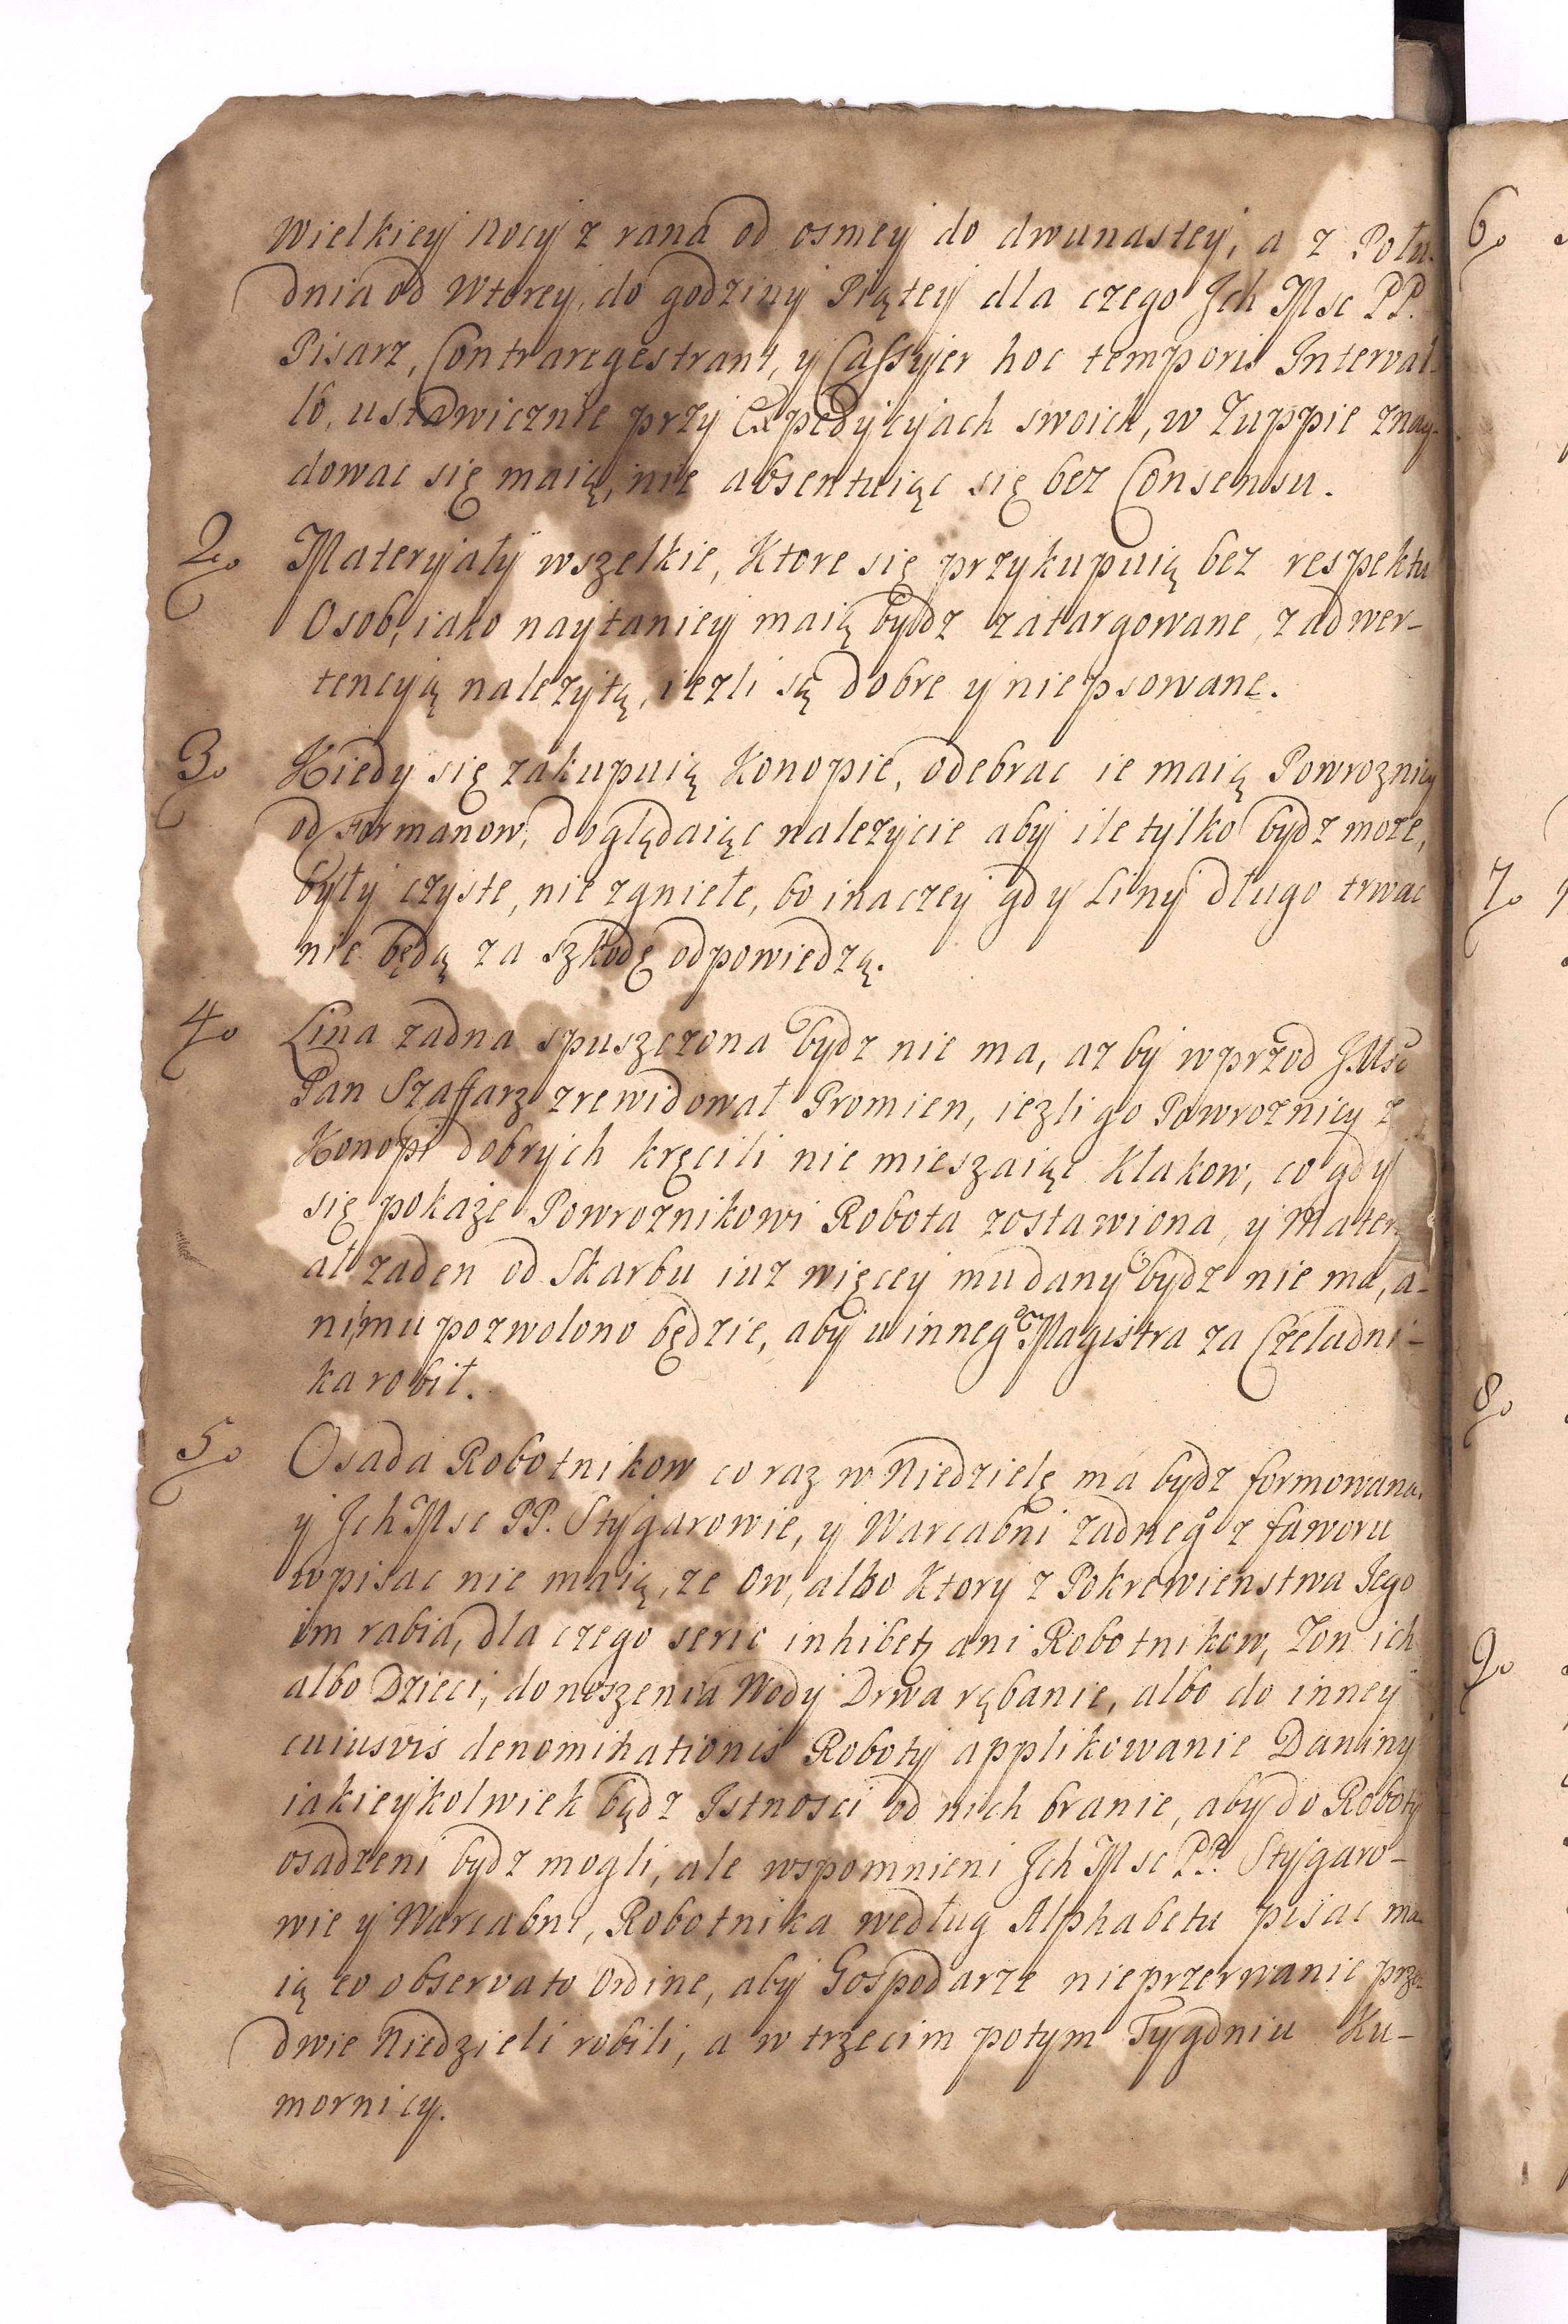 Wielkiey Nocy z rana od osmey do dwunastey, a z Połu-
dnia od Wtorey do godziny Piątey dla czego Jch Msc PP.
Pisarz, Contraregestrant, y Cassyier hoc temporis Interval-
lo, ustawicznie przy Expedycyach swoich, w Zuppie znay-
dowac się maią, nie absentuiąc się bez Consensu.
2o Materyały wszelkie, Ktore się przykupuią bez respektu
Osob, iako naytaniey maią bydz zatargowane, z adwer-
tencyią należytą, iezli są dobre y niepsowane.
3o Kiedy się zakupuią Konopie, odebrac ie maią Powroznicy
od Formanow, doglądaiąc nalezycie aby ile tylko bydz może,
były czyste, nie zgniełe, bo inaczey gdy Liny długo trwac
nie będą za szkodę odpowiedzą.
4o Lina zadna spuszczona bydz nie ma, az by wprzod JMsc
Pan Szaffarz zrewidował Promien, iezli go Powroznicy z
Konopi dobrych kręcili nie mieszaiąc Kłakow, co gdy
się pokaże Powroznikowi Robota zostawiona, y Matery
ał zaden od Skarbu iuz więcey mu dany bydz nie ma, a-
ni mu pozwolono będzie, aby u innego Magistra za Czeladni-
ka robił.
5o Osada Robotnikow co raz w Niedzielę ma bydz formowana.
y Jch Msc PP. Stygarowie, y Warcabni zadnego z faworu
wpisac nie maią, ze Ow, albo Ktory z Pokrewienstwa Jego
im rabia, dla czego serio inhibet ani Robotnikow, Zon ich
albo Dzieci, do noszenia Wody Drwa rąbanie, albo do inney
cuiusvis denominationis Roboty applikowanie Daniny
iakieykolwiek bądz Istnosci od nich branie, aby do Roboty
osadzeni bydz mogli, ale wspomnieni Jch Msc PP. Stygaro-
wie y Warcabni, Robotnika według Alphabetu pisac ma
ią eo observato Ordine, aby Gospodarze nieprzerwanie przez
dwie Niedzieli robili, a w trzecim potym Tygdniu Ku-
mornicy.
6o
7o
8o
9o